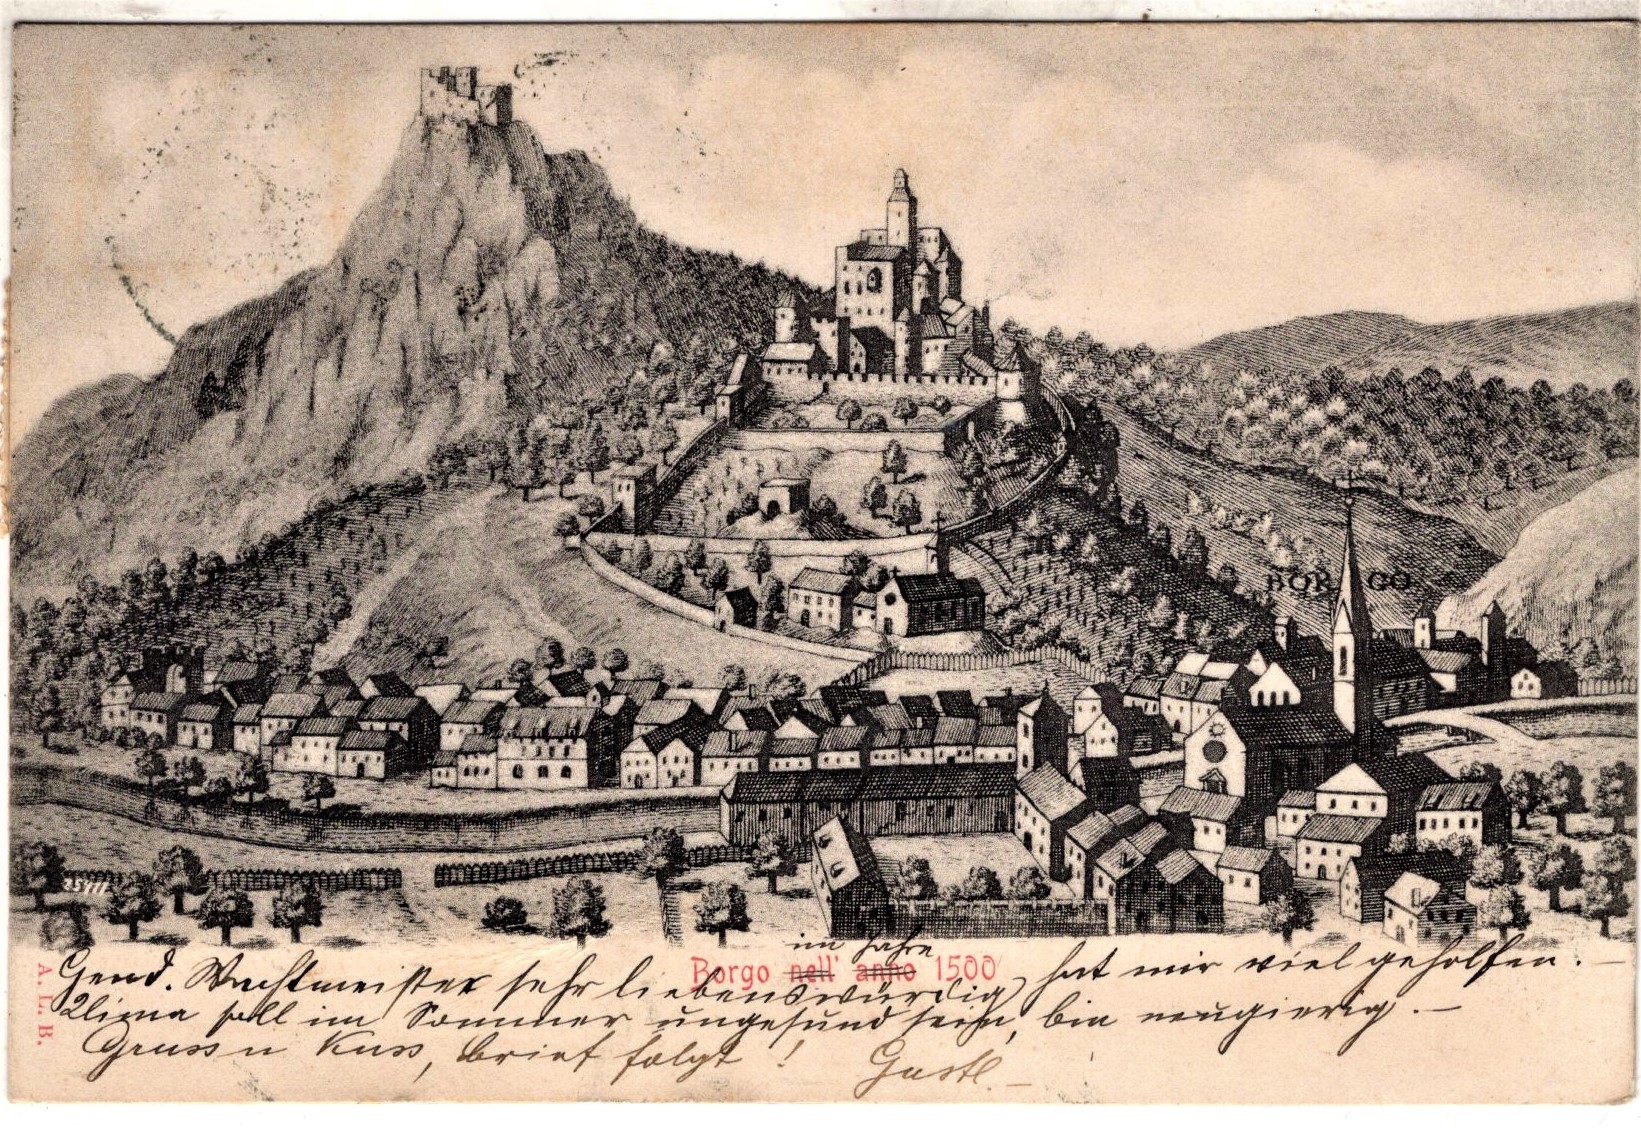 BORGO
25411
im Jahre
Borgo nell' anno 1500
A. L. B.
Gend. Wachtmeister sehr liebenswürdig, hat mir viel geholfen. –
Klima soll im Sommer ungesund sein, bin neugierig. –
Gruss u Kuss, brief folgt !
Gustl. –